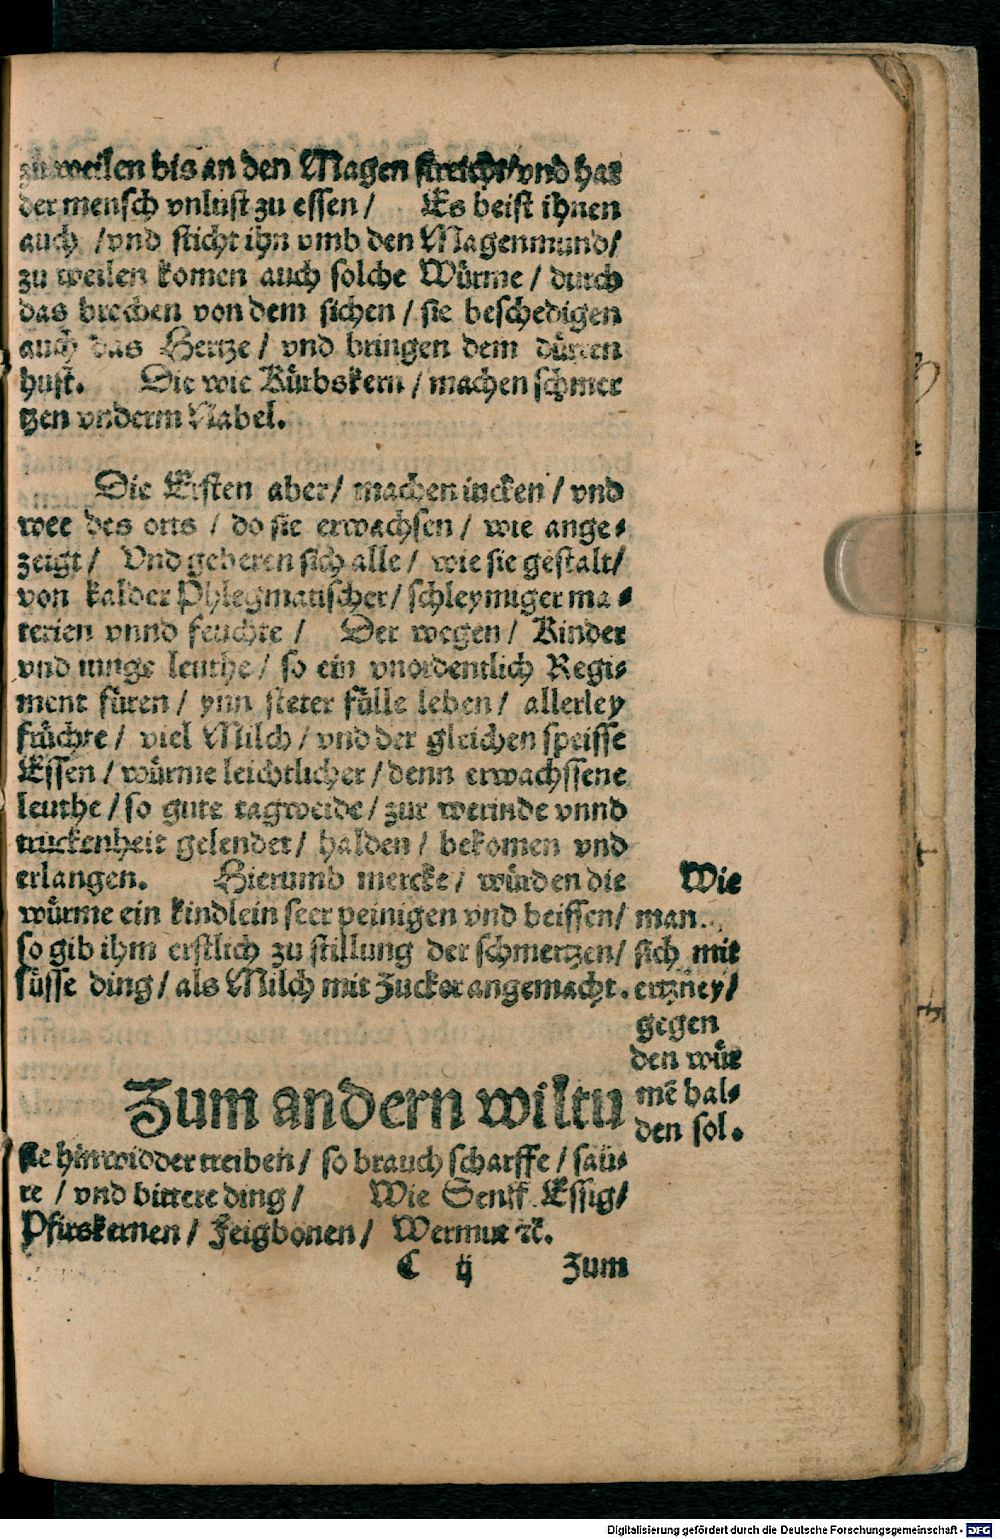 zu weilen bis an den Magen streicht/vnd hat
der mensch vnlust zu essen / Es beist ihnen
auch /vnd sticht ihn vmb den Magenmund/
zu weilen komen auch solche Würme / durch
das brechen von dem sichen / sie beschedigen
auch das Hertze / vnd bringen dem dürren
hust. Die wie Kürbskern / machen schmer
tzen vnderm Nabel.
Die Ersten aber/ machen iucken / vnd
wee des orts / do sie erwachsen / wie ange⸗
zeigt / Vnd geberen sich alle / wie sie gestalt/
von kalder Phlegmatischer/ schleymiger ma⸗
terien vnnd feuchte / Der wegen / Kinder
vnd iunge leuthe / so ein vnordentlich Regi⸗
ment füren / ynn steter fülle leben / allerley
früchte / viel Milch / vnd der gleichen speisse
Essen / würme leichtlicher / denn erwachssene
leuthe / so gute tagweide / zur werinde vnnd
truckenheit gelendet / halden / bekomen vnd
erlangen. Hierumb mercke / würden die
würme ein kindlein seer peinigen vnd beissen/
so gib ihm erstlich zu stillung der schmertzen/
süsse ding / als Milch mit Zucker angemacht.
Wie
man
sich mit
ertzney/
gegen
den wür
mē hal⸗
den sol.
Zum andern wiltu
sie hinwidder treiben / so brauch scharffe / saü⸗
re / vnd bittere ding / Wie Senff. Essig/
Pfirskernen / Feigbonen / Wermut ꝛc.
C ij Zum
Digitalisierung gefördert durch die Deutsche Forschungsgemeinschaft - DFG